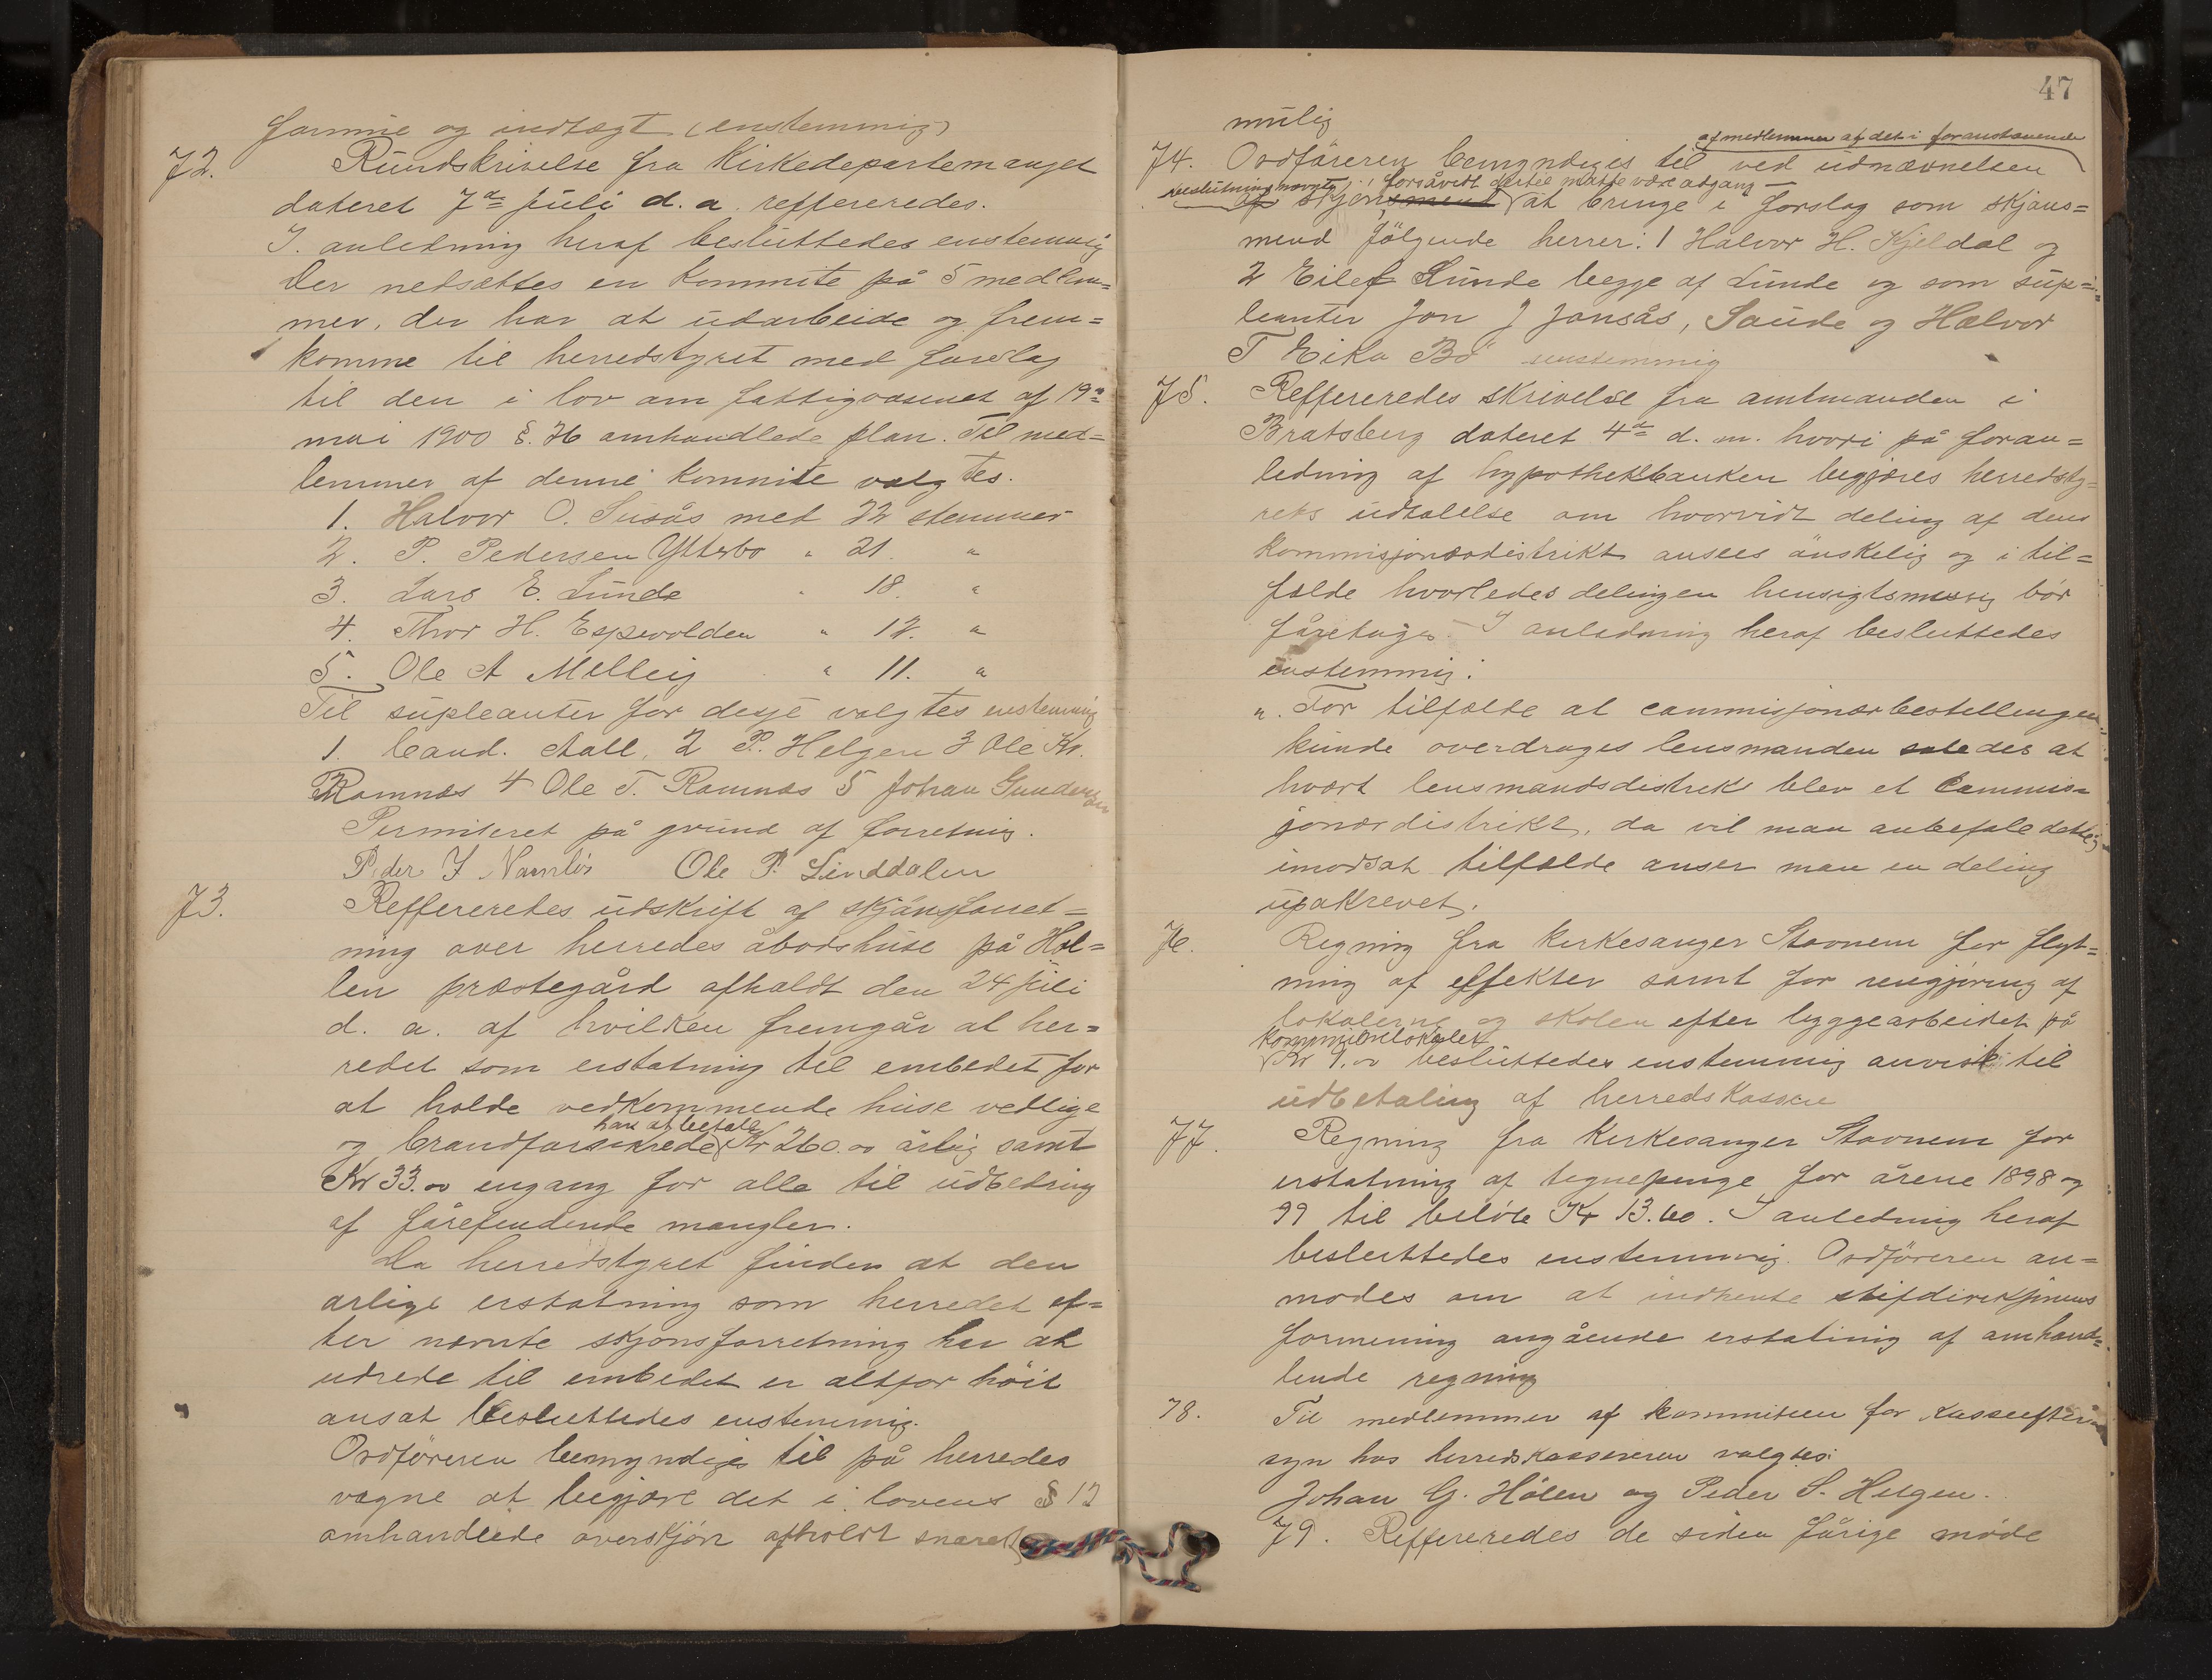 formue og indtægt (enstemmig)
72. Rundskrivelse fra Kirkedepartemanget
dateret 7de juli d. a. reffereredes.
I. anledning heraf besluttedes enstemmig
Der nedsættes en Kommite på 5 medlem=
mer, der har at udarbeide og frem=
komme til herredstyret med forslag
til den i lov om fattigvæsenet af 19de
mai 1900 §. 76 omhandlede plan. Til med=
lemmer af denne kommite valgtes.
1. Halvor O. Susås med 22 stemmer
2. P. Pedersen Ytterbo " 21. "
3. Lars E. Lunde " 18. "
4. Thor H. Espevolden " 12. "
5. Ole A Melteig " 11. "
Til supleanter for desse valgtes enstemmig
1. Cand. Aall, 2 P. Helgen 3 Ole Kr.
Romnæs 4 Ole T. Romnæs 5 Johan Gundersen
Permiteret på grund af forretnig.
Peder J Namløs Ole P. Linddalen
73. Reffereredes udskrift af skjønsforret=
ning over herredes åbodshuse på Hol=
len præstegård afholdt den 24 juli
d. a. af hvilken fremgår at her=
redet som erstatning til embedet for
at holde vedkommende huse vedlige
har at betale
og brandforsikrede Kr 260.00 årlig samt
Kr 33.00 engang for alle til udbedring
af førefindende mangler.
Da herredstyret finder at den
årlige erstatning som herredet ef=
ter nævnte skjønsforretning har at
udrede til embedet er altfor høit
ansat besluttedes enstemmig.
Ordføreren bemyndiges til på herredes
vegne at begjære det i lovens § 12
omhandlede overskjøn afholdt snarest
47
mulig
af medlemmer af det i foranstaaende
74. Ordføreren bemyndiges til ved udnævnelsen
beslutning nævnte forsåvidt dertil måtte være adgang —
af skjønsmend at bringe i forslag som skjøns=
mend følgende herrer: 1 Halvor H. Kjeldal og
2 Eilef Lunde begge af Lunde og som sup=
leanter Jon J Jonsås, Saude og Halvor
T Eika Bø enstemmig
75. Reffereredes skrivelse fra amtmanden i
Bratsberg dateret 4de d. m. hvori på foran=
ledning af hypothekbanken begjæres herredsty=
rets udtalelse om hvorvidt deling af dens
Kommisjonærdistrikt ansees ønskelig og i til=
fælde hvorledes delingen hensigtsmessig bør
føretages. I anledning heraf besluttedes
enstemmig:
". For tilfælde at commisjonærbestellingen
kunde overdrages lensmanden således at
hvært lensmandsdistrikt blev et Commis=
jonærdistrikt, da vil man anbefale dette,
imodsat tilfælde anser man en deling
upåkrevet.
76. Regning fra Kirkesanger Stavnem for flyt=
ning af effekter samt for rengjøring af
lokalerne og skolen efter byggearbeidet på
kommunelokalet
Kr 9.00 besluttedes enstemmig anvist til
udbetaling af herredskassen
77. Regning fra Kirkesanger Stavnem for
erstatning af tegnepenge for årene 1898 og
99 til beløb Kr 13.60. I anledning heraf
besluttedes enstemmig. Ordføreren an=
modes om at indhente stifdirektjonens
formening angående erstatinig af omhand=
lende regning
78. Til medlemmer af kommiteen for kasseefter=
syn hos herredskassereren valgtes:
Johan G. Holen og Peder S. Helgen.
79. Reffereredes de siden førige møde